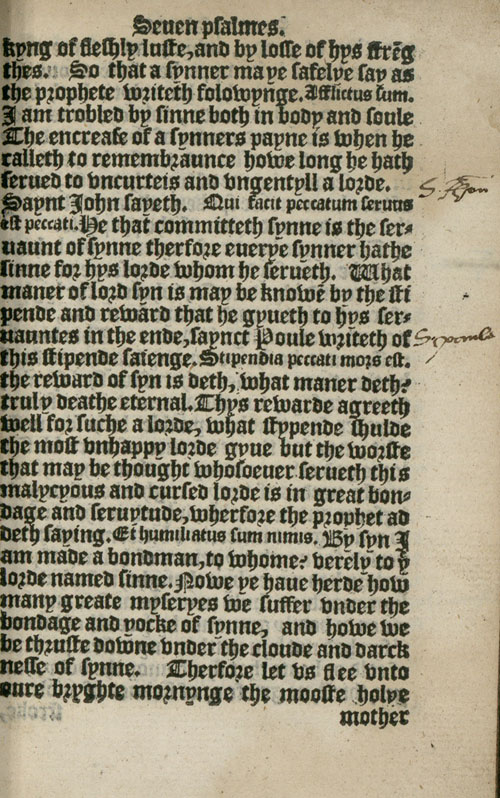 Seuen psalmes.
kyng of fleshly luste, and by losse of hys strēg
thes. So that a synner maye safelye say as
the prophete writeth folowynge. Afflictus sum.
I am trobled by sinne both in body and soule
The encrease of a synners payne is when he
calleth to remembraunce howe long he hath
serued to vncurteis and vngentyll a lorde.
Saynt John sayeth. Qui facit peccatum seruus
est peccati. He that committeth synne is the ser-
uaunt of synne therfore euerye synner hathe
sinne for hys lorde whom he serueth. What
maner of lord syn is may be knowē by the sti
pende and reward that he gyueth to hys ser-
uauntes in the ende, saynct Poule writeth of
this stipende saienge. Stipendia peccati mors est.
the reward of syn is deth, what maner deth?
truly deathe eternal. Thys rewarde agreeth
well for suche a lorde, what stypende shulde
the most vnhappy lorde gyue but the worste
that may be thought whosoeuer serueth this
malycyous and cursed lorde is in great bon-
dage and seruytude, wherfore the prophet ad
deth saying. Et humiliatus sum nimis. By syn I
am made a bondman, to whome? verely to yͤ
lorde named sinne. Nowe ye haue herde how
many greate myseryes we suffer vnder the
bondage and yocke of synne, and howe we
be thruste downe vnder the cloude and darck
nesse of synne. Therfore let vs flee vnto
oure bryghte mornynge the mooste holye
mother